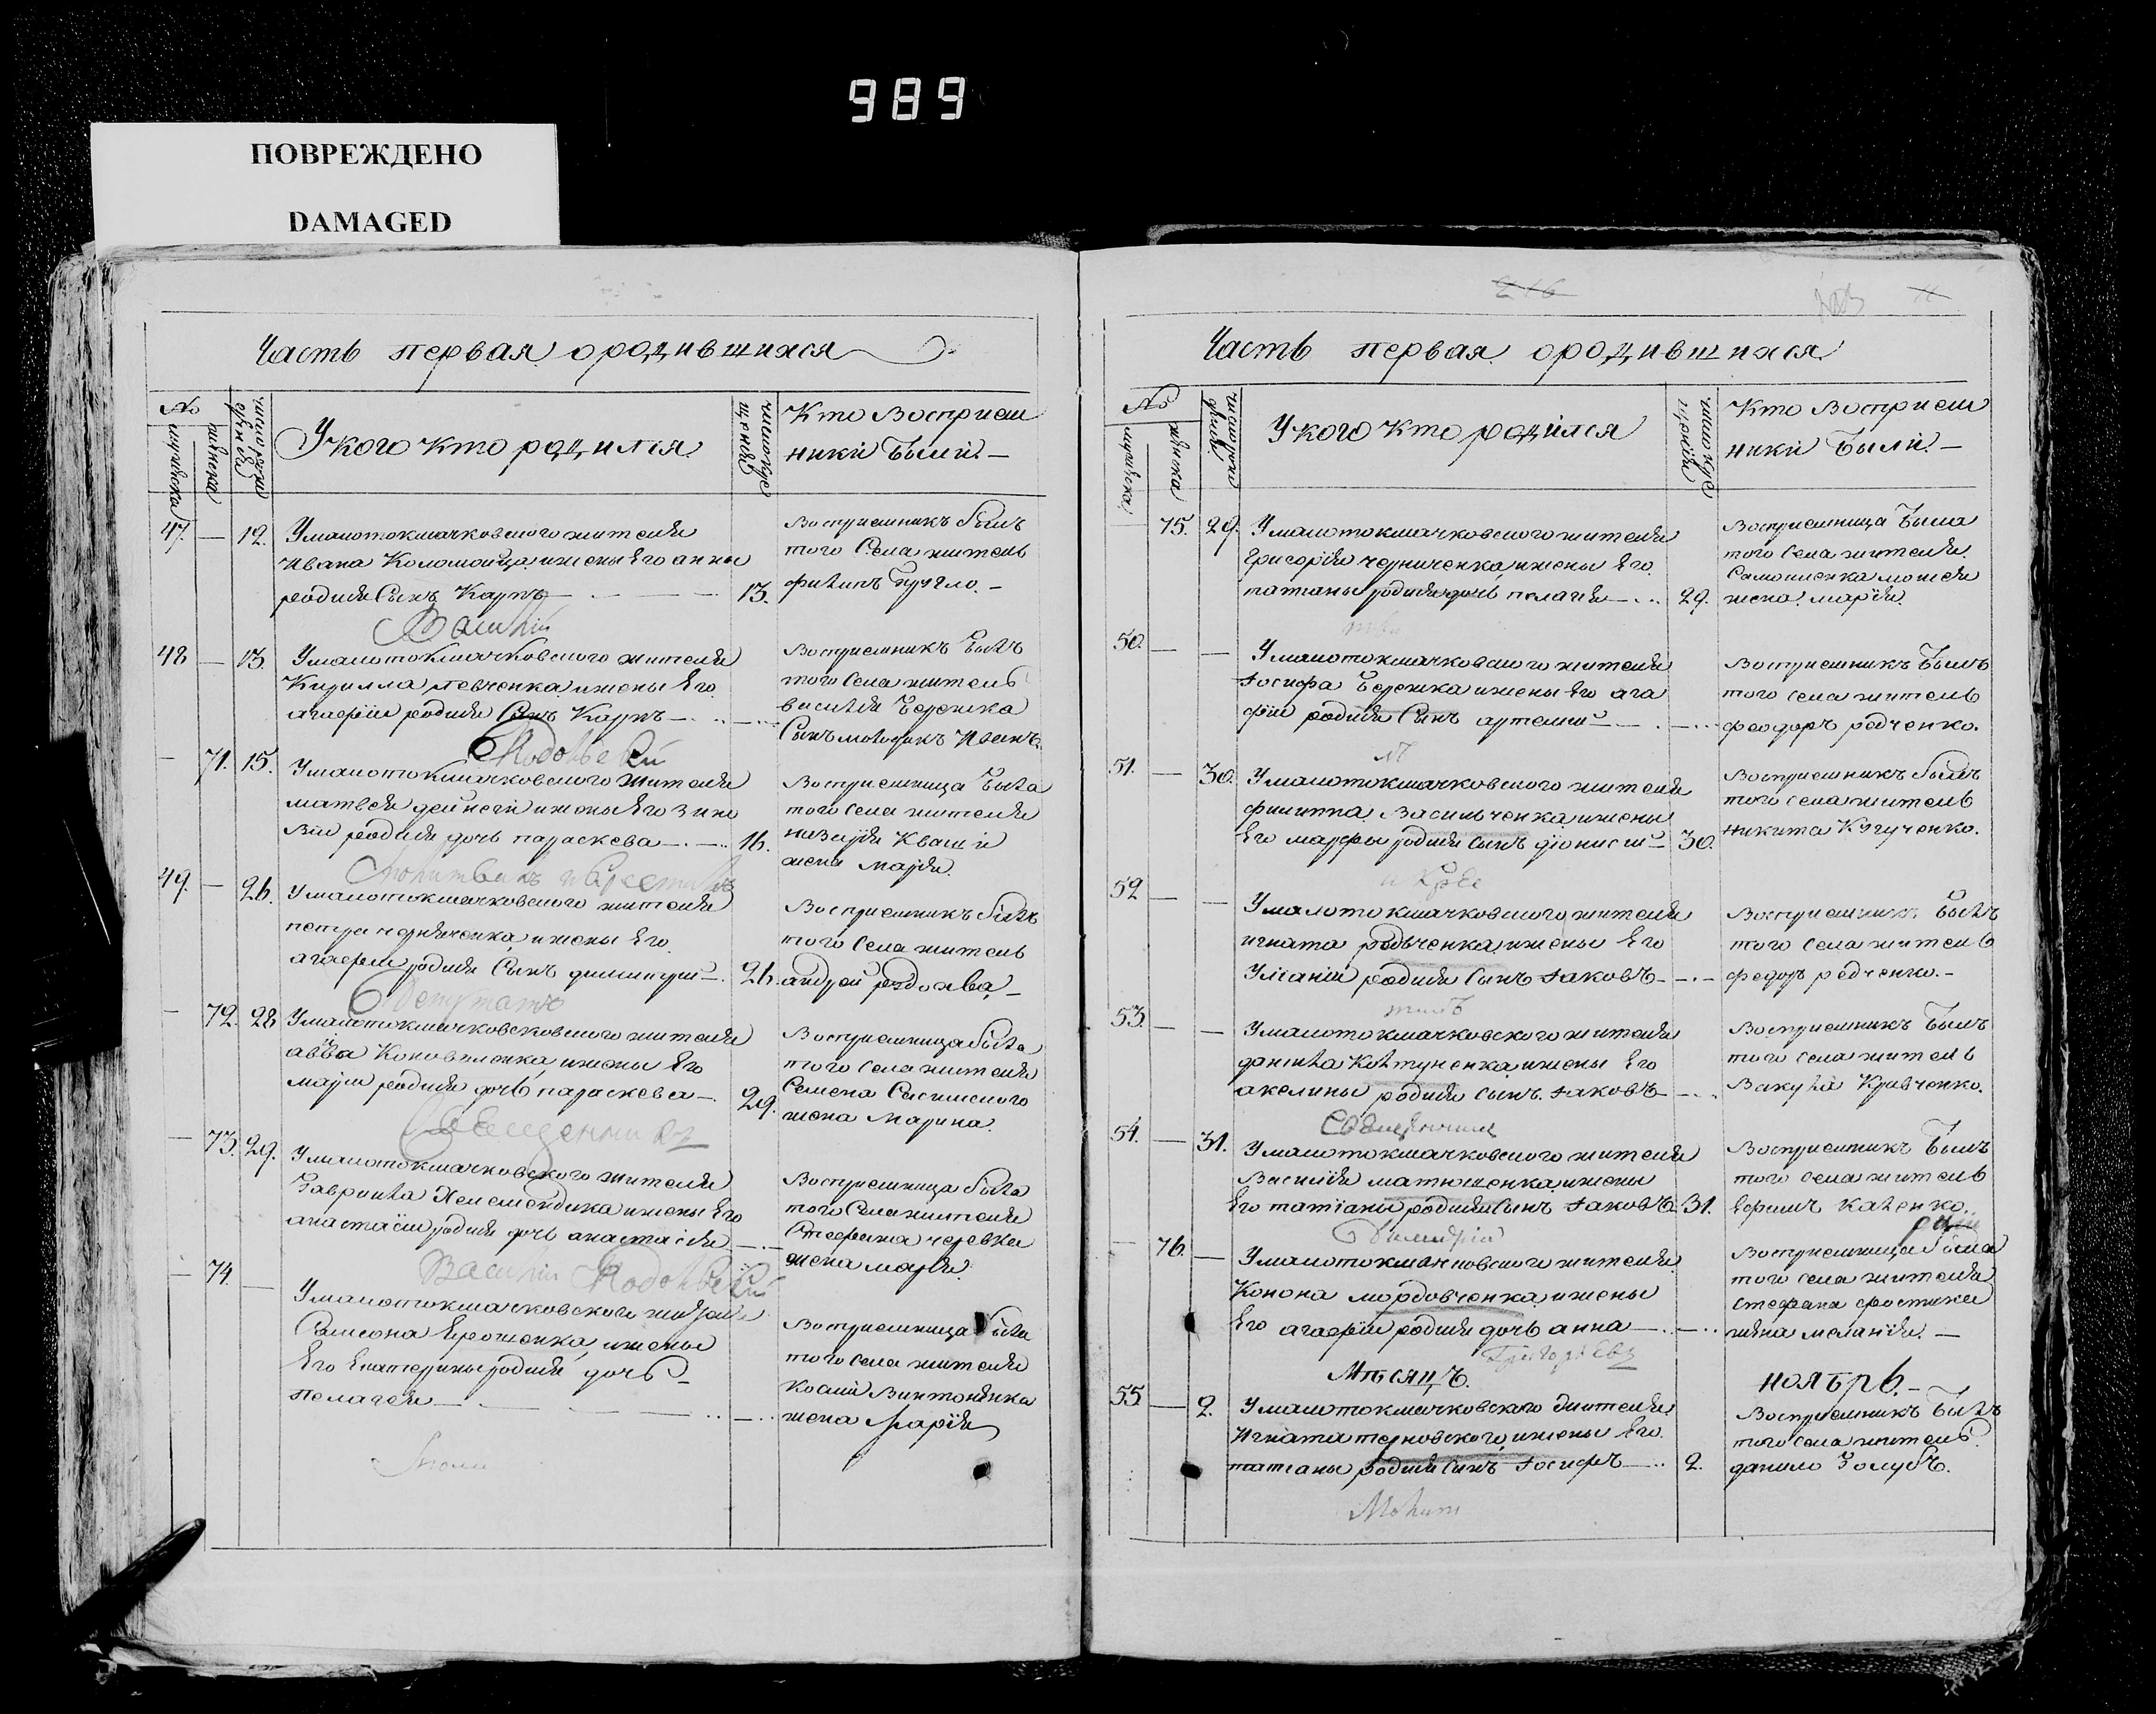 989
ПОВРЕЖДЕНО
DAMAGED
Часть первая ородившихся
№
мужеска
женска
число рождения
Укого кто родился
число крещения
Кто Восприем
никіи Былиі. —
47. — 12. Умалотокмачковского жителя
Ивана Коломойца ижены Его анны
родился Сынъ Карпъ — 13.
Восприемникъ былъ
того Села житель
филипъ
Василій
48 — 13. Умалотокмачковского жителя
Кирилла певченка ижены Его
агафіи родился Сынъ Карпъ —
Восприемникъ Былъ
того Села житель
василія Бережка
Сынъ Иванъ.
Подольскій
— 71. 15. Умалотокмачковского жителя
матвея дейнеги ижены Его зино
віи родиля дочь параскева — 16.
Восприемница Была
того Села жителя
Кваши
жена Марія.
Молитвилъ икрестилъ
49. — 26. Умалотокмачковского жителя
петра ижены Его
агафіи родился Сынъ димитрий — 26.
Восприемникъ былъ
того Села житель
андрей
Депутатъ
— 72. 28 Умалотокмачковсковского жителя
авва Коноваленка ижены Его
маріи родиля дочь параскева — 29.
Восприемница была
того Села жителя
Семена
жена Марина.
Священникъ
— 73. 29. Умалотокмачковского жителя
Гавриила ижены Его
анастасіи родиля дочь анастасія —
Восприемница была
того Села жителя
Стефана черевка
жена марія.
Василій Подольскій
— 74. — Умалотокмачковского жителя
Самсона Ерошенка ижены
Его Екатерины родиля дочь
пелагея —
Восприемница была
того Села жителя
Косми Винтоненка
жена Марія
Моли
246
Часть первая ородившихся
№
мужеска
женска
число рождения
Укого кто родился
число крещения
Кто Восприем
никіи Былиі. —
— 75. 29. Умалотокмачковского жителя
Григорія черниченка ижены Его
татіаны родиля дочь пелагея — 29.
Восприемница Была
того Села жителя
Самойленка мойсея
жена Марія.
50. — — Умалотокмачковского жителя
Іосифа Бережка ижены Его ага
фіи родился Сынъ артемий —
Восприемникъ Былъ
того села житель
феодоръ редченко.
51. — 30. Умалотокмачковского жителя
филиппа Васильченка ижены
Его марфы родился сынъ діонисий — 30.
Восприемникъ былъ
того села житель
никита Кучученко.
и Кре
52 — — Умалотокмачковского жителя
игната ижены Его
Уліаніи родился Сынъ Іаковъ —
Восприемникъ Былъ
того села житель
федоръ редченко. —
тилъ
53. — — Умалотокмачковского жителя
данила Ковтуненка ижены Его
акелины родился сынъ Іаковъ —
Восприемникъ Былъ
того села житель
Вакула Кравченко.
Священникъ
54. — 31. Умалотокмачковского жителя
Василія матюшенка ижены
Его татіаны родился Сынъ Іаковъ 31.
Восприемникъ Былъ
того села житель
Ефимъ Каленко.
Димитрій
— 76. — Умалотокмачковского жителя
Конона мордовченка ижены
Его агафіи родиля дочь анна —
Восприемница была
того села жителя
Стефана
жена меланія. —
Григорьевъ
Мѣсяцъ. ноябрь. —
55 — 2. Умалотокмачковского жителя
Игната терновского ижены Его
татианы родился Сынъ Іосифъ — 2.
Восприемникъ Былъ
того Села житель
данило Голубъ.
Молит